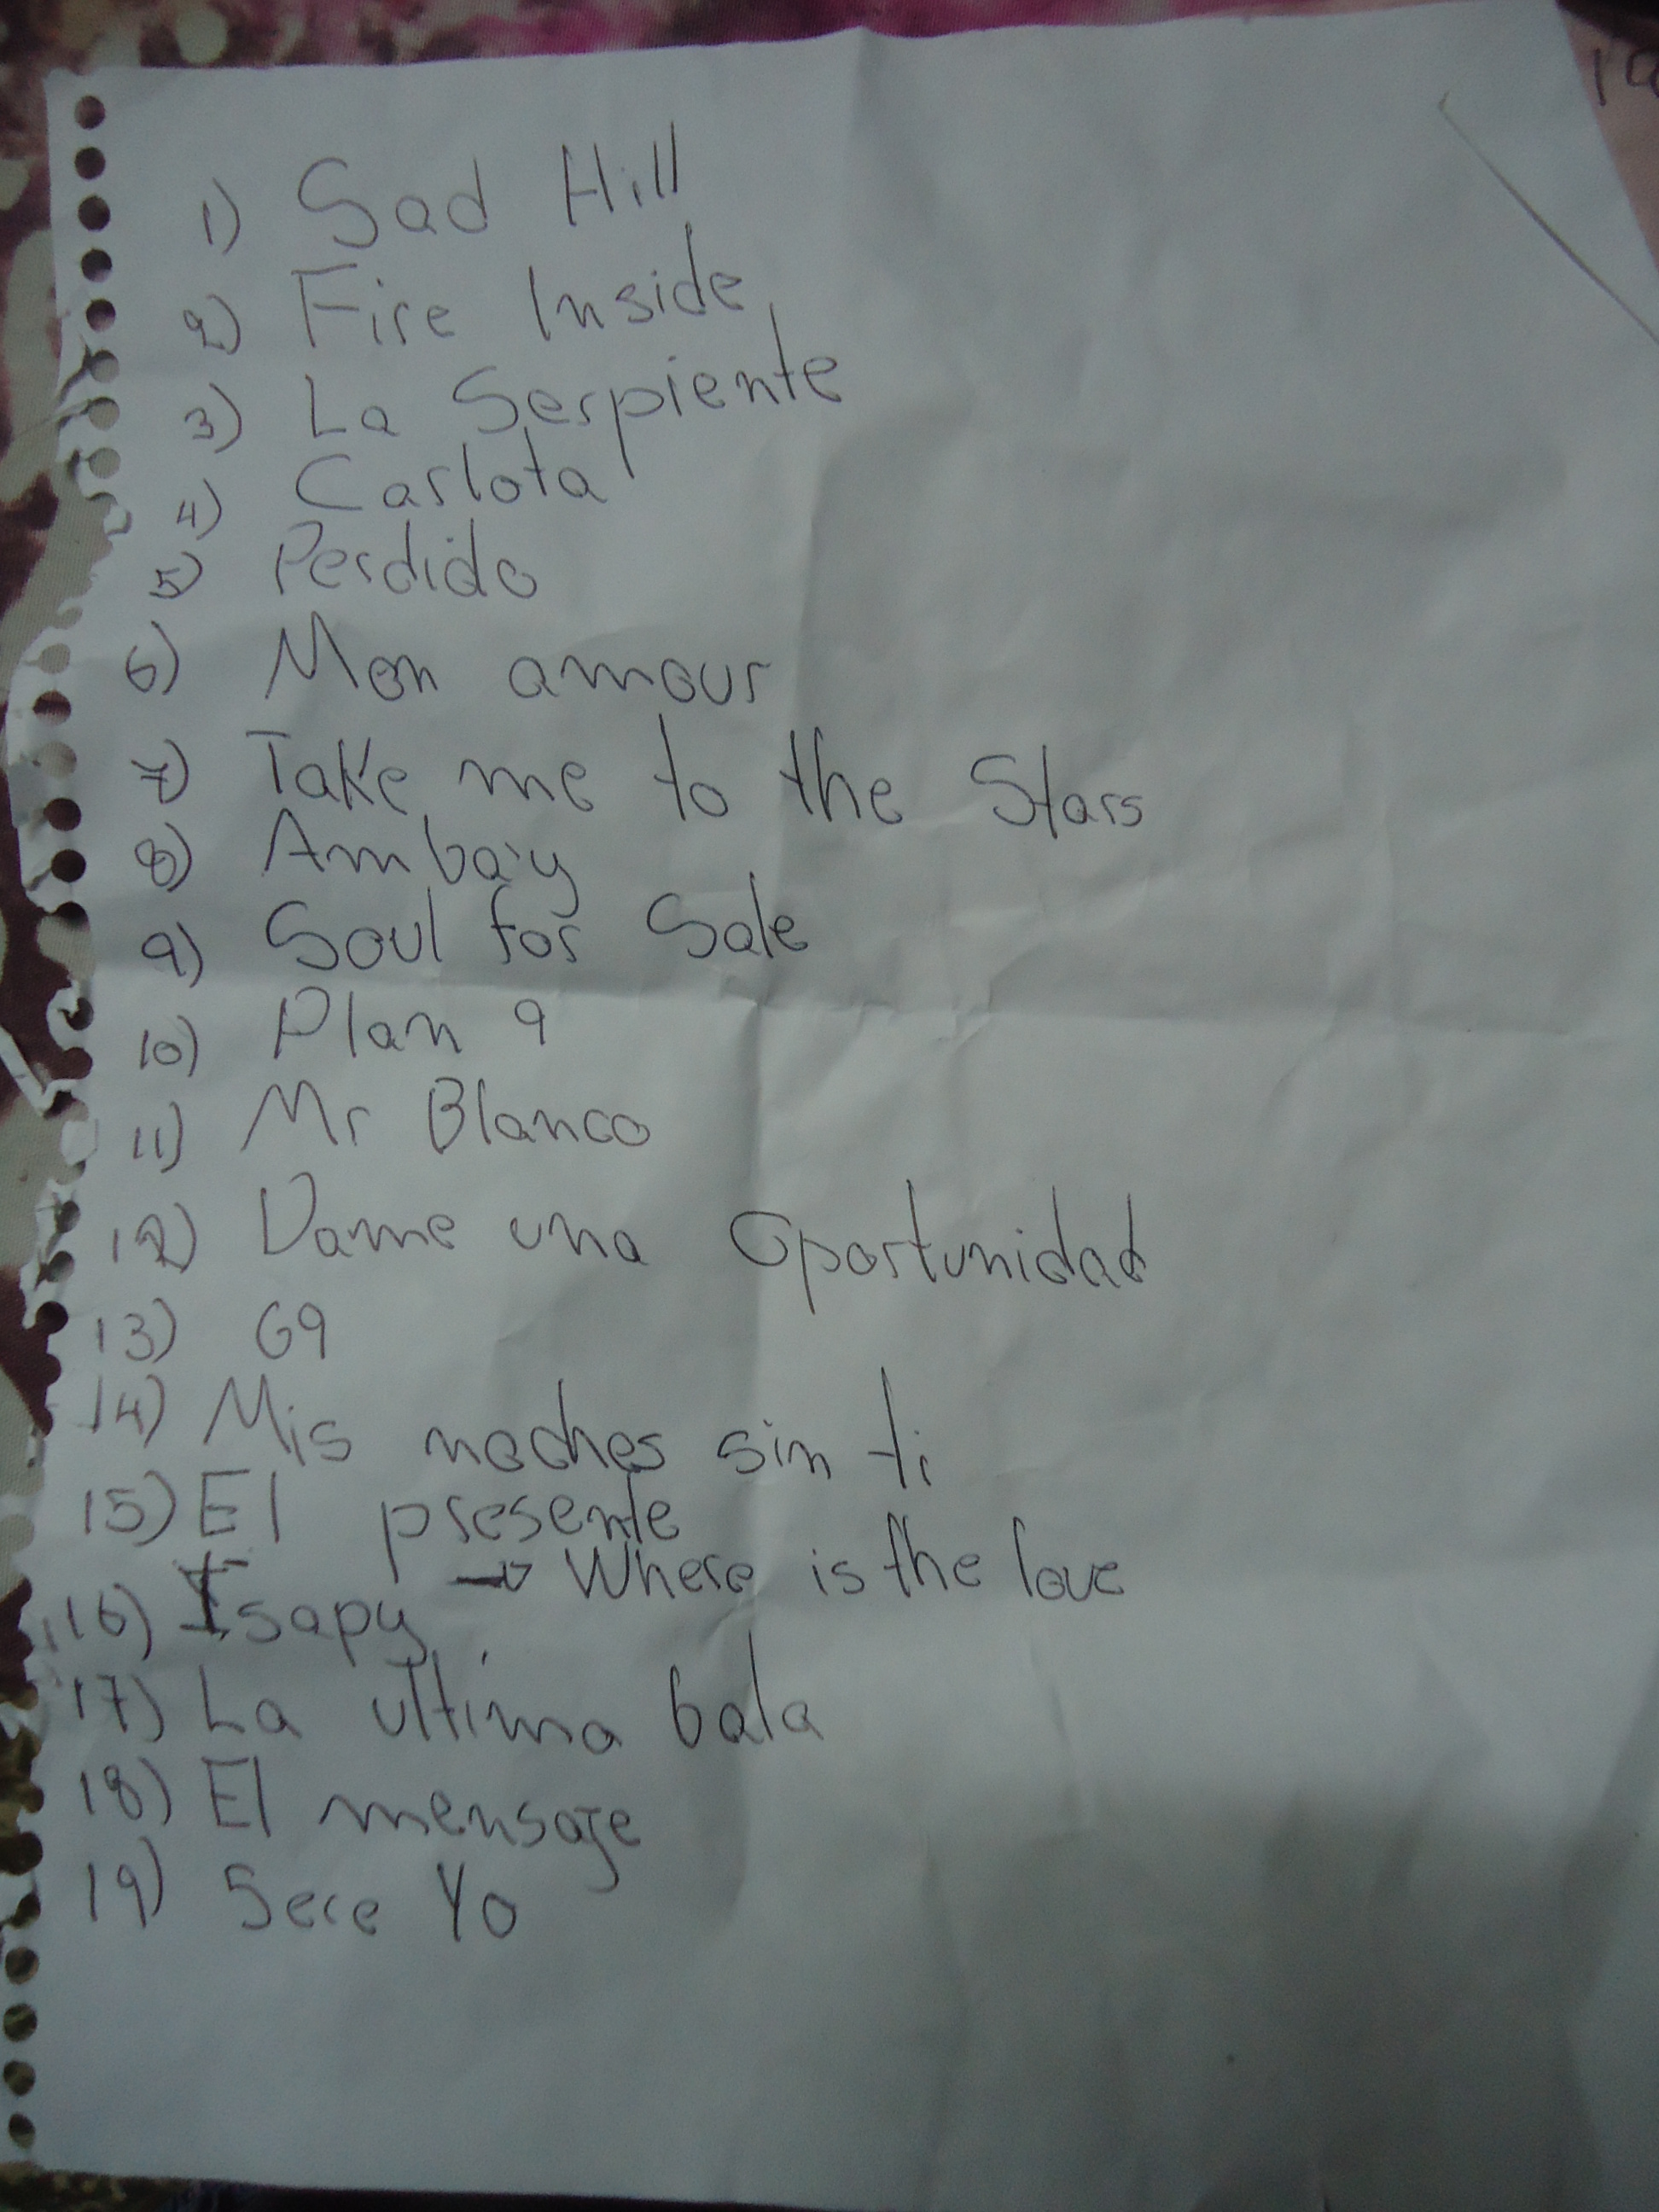 19
1) Sad Hill
2) Fire Inside
3) La Serpiente
4) Carlota
5) Perdido
6) Mon amour
7) Take me to the Stars
8) Ambay
9) Soul for Sale
10) Plan 9
11) Mr Blanco
12) Dame una Oportunidad
13) 69
14) Mis noches sin ti
15) El presente
→ Where is the love
16) Isapy
17) La última bala
18) El mensaje
19) Sere Yo